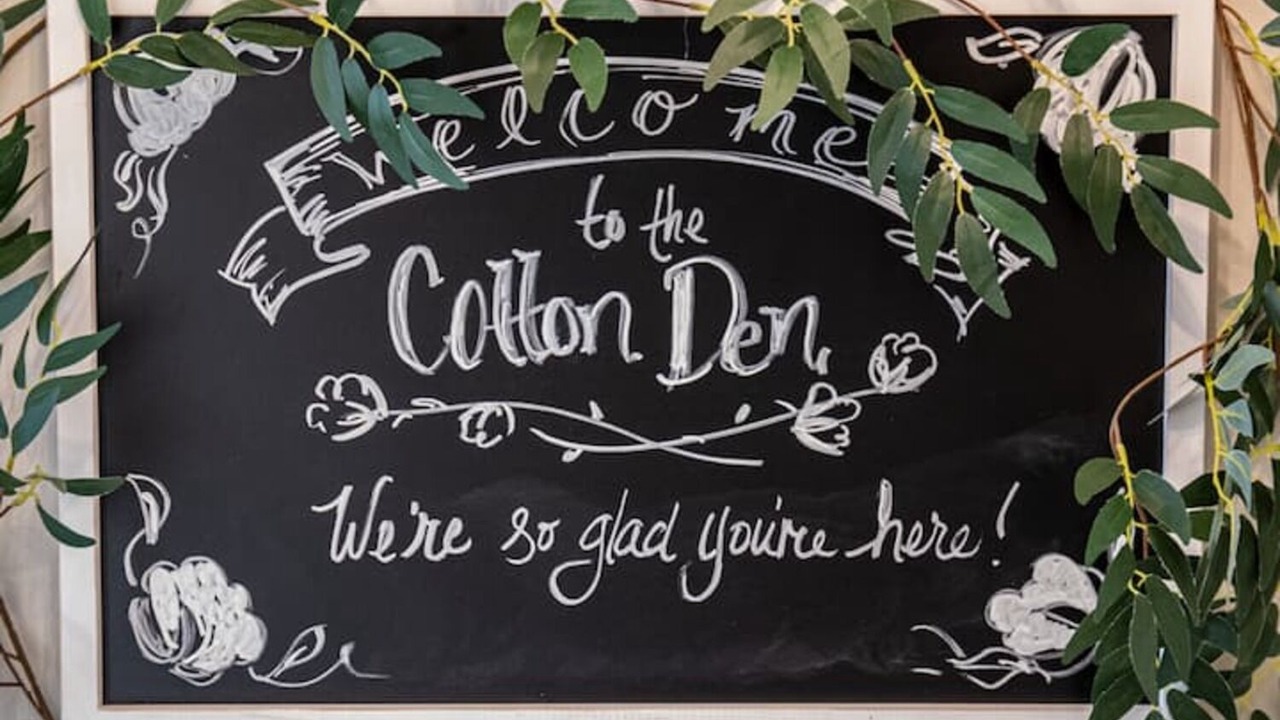 Welcome
to the
Cotton Den,
We're so glad you're here!